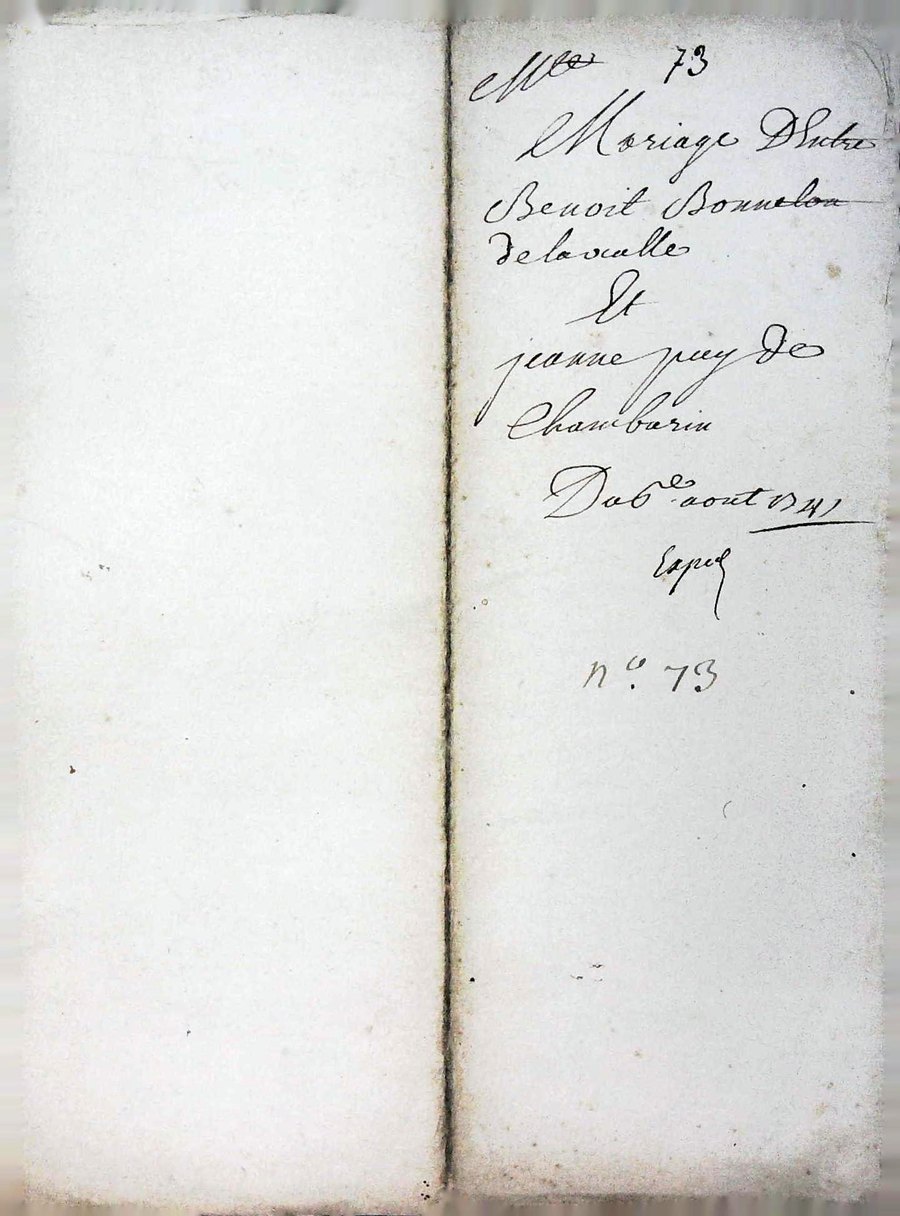 73
Mariage D'Entre
Benoit Bonnelon
delavalle
Et
jeanne puy de
Chambarin
Du 6e aout 1741
Exped
no. 73